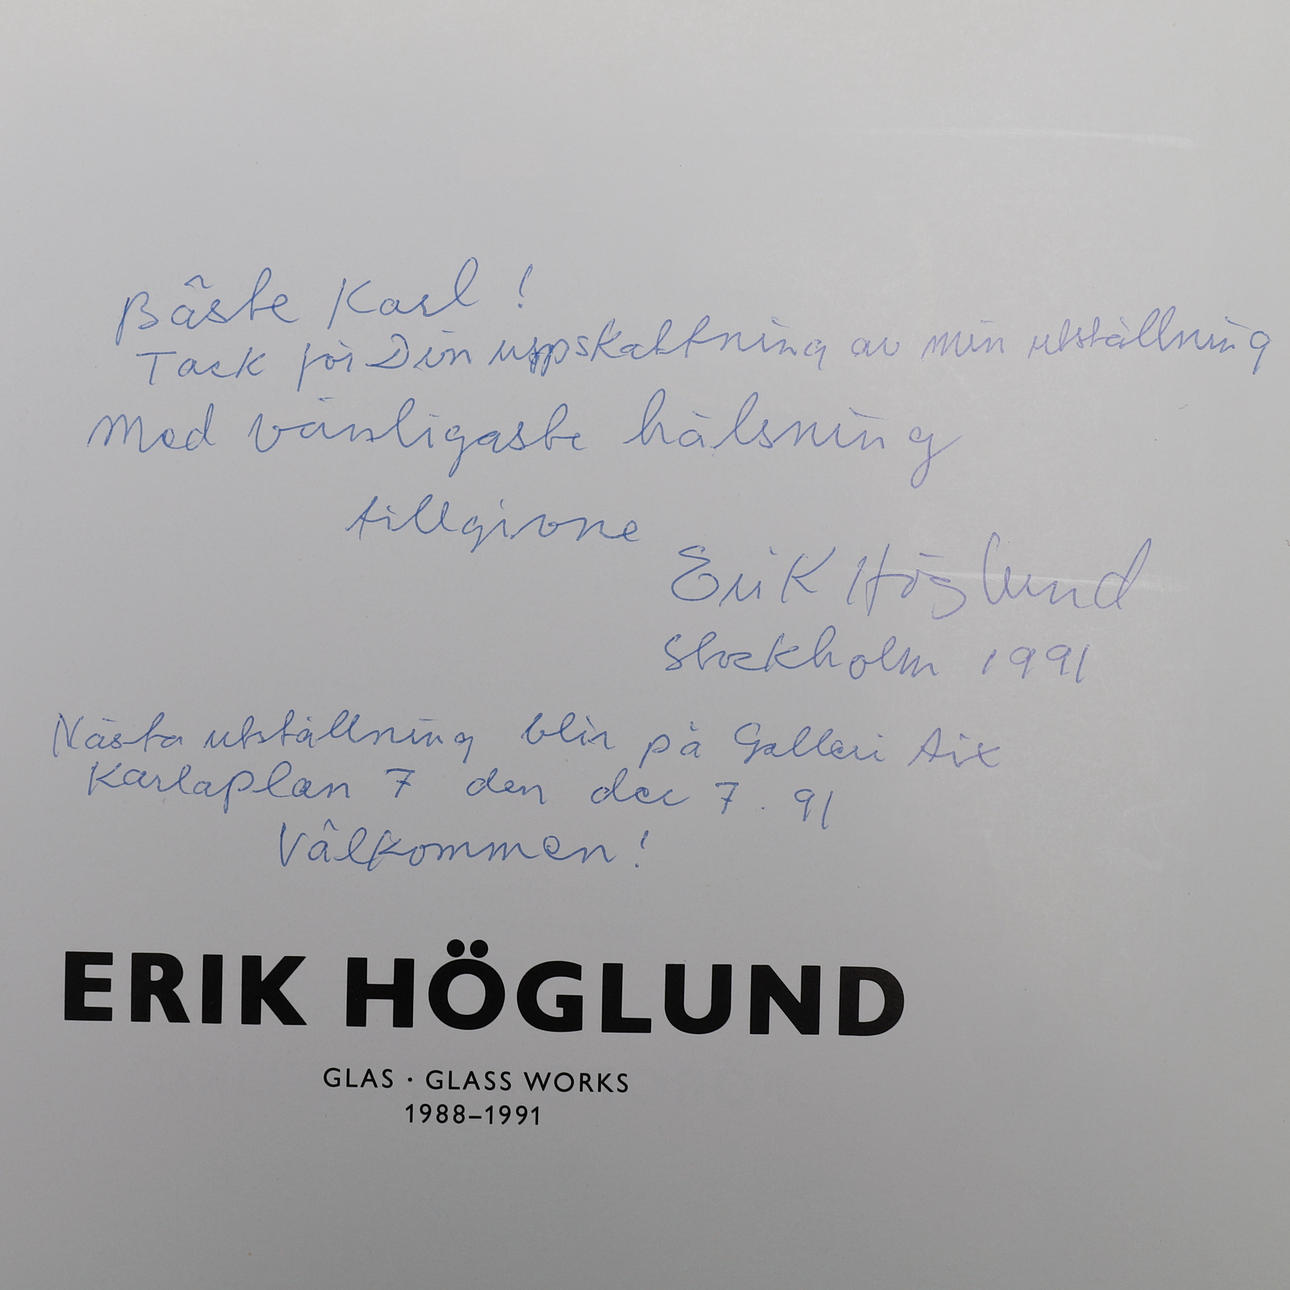 Bäste Karl !
Tack för Din uppskattning av min utställning
Med vänligaste hälsning
tillgivne
Erik Höglund
Stockholm 1991
Nästa utställning blir på Galleri Aix
Karlaplan 7 den dec 7. 91
Välkommen!
ERIK HÖGLUND
GLAS · GLASS WORKS
1988–1991